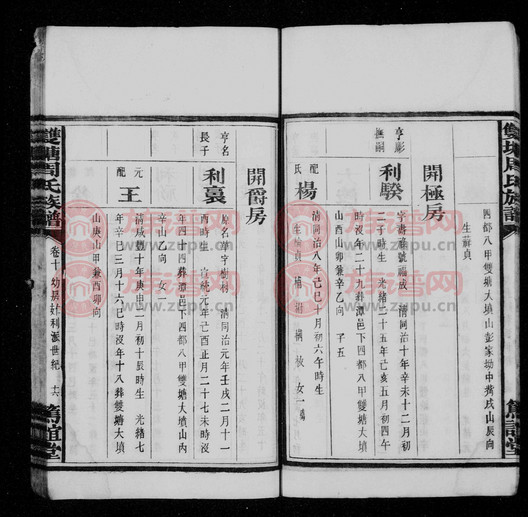 雙塘周氏族譜
篤誼堂
四都八甲雙塘大塤山彭家坳中嘴戌山辰向
生 貞
開極房
亨彭
撫嗣
利騤
字 號福成 清同治十年辛未十二月初
二子時生 光緒二十五年己亥五月初四午
時沒年二十九葬潭邑下四都八甲雙塘大塤
山酉山卯兼辛乙向 子五
配
楊
氏
清同治八年己巳十月初六午時生
生 貞 楨 樹 桐 枚 女一
開爵房
亨名
長子
利裏
原名華字樹利 清同治元年壬戌二月十一
酉時生 宣統元年己酉正月二十七未時沒
年四十四葬潭邑下四都八甲雙塘大塤山內
辛山乙向 女一
元
配
王
清咸豐十年庚申 月初十辰時生 光緒七
年辛巳三月十六巳時沒年十八葬雙塘大塤
山庚山甲兼酉卯向
雙塘周氏族譜
卷十 幼房 利派世紀 十六
篤誼堂
族譜网
www.zupu.cn